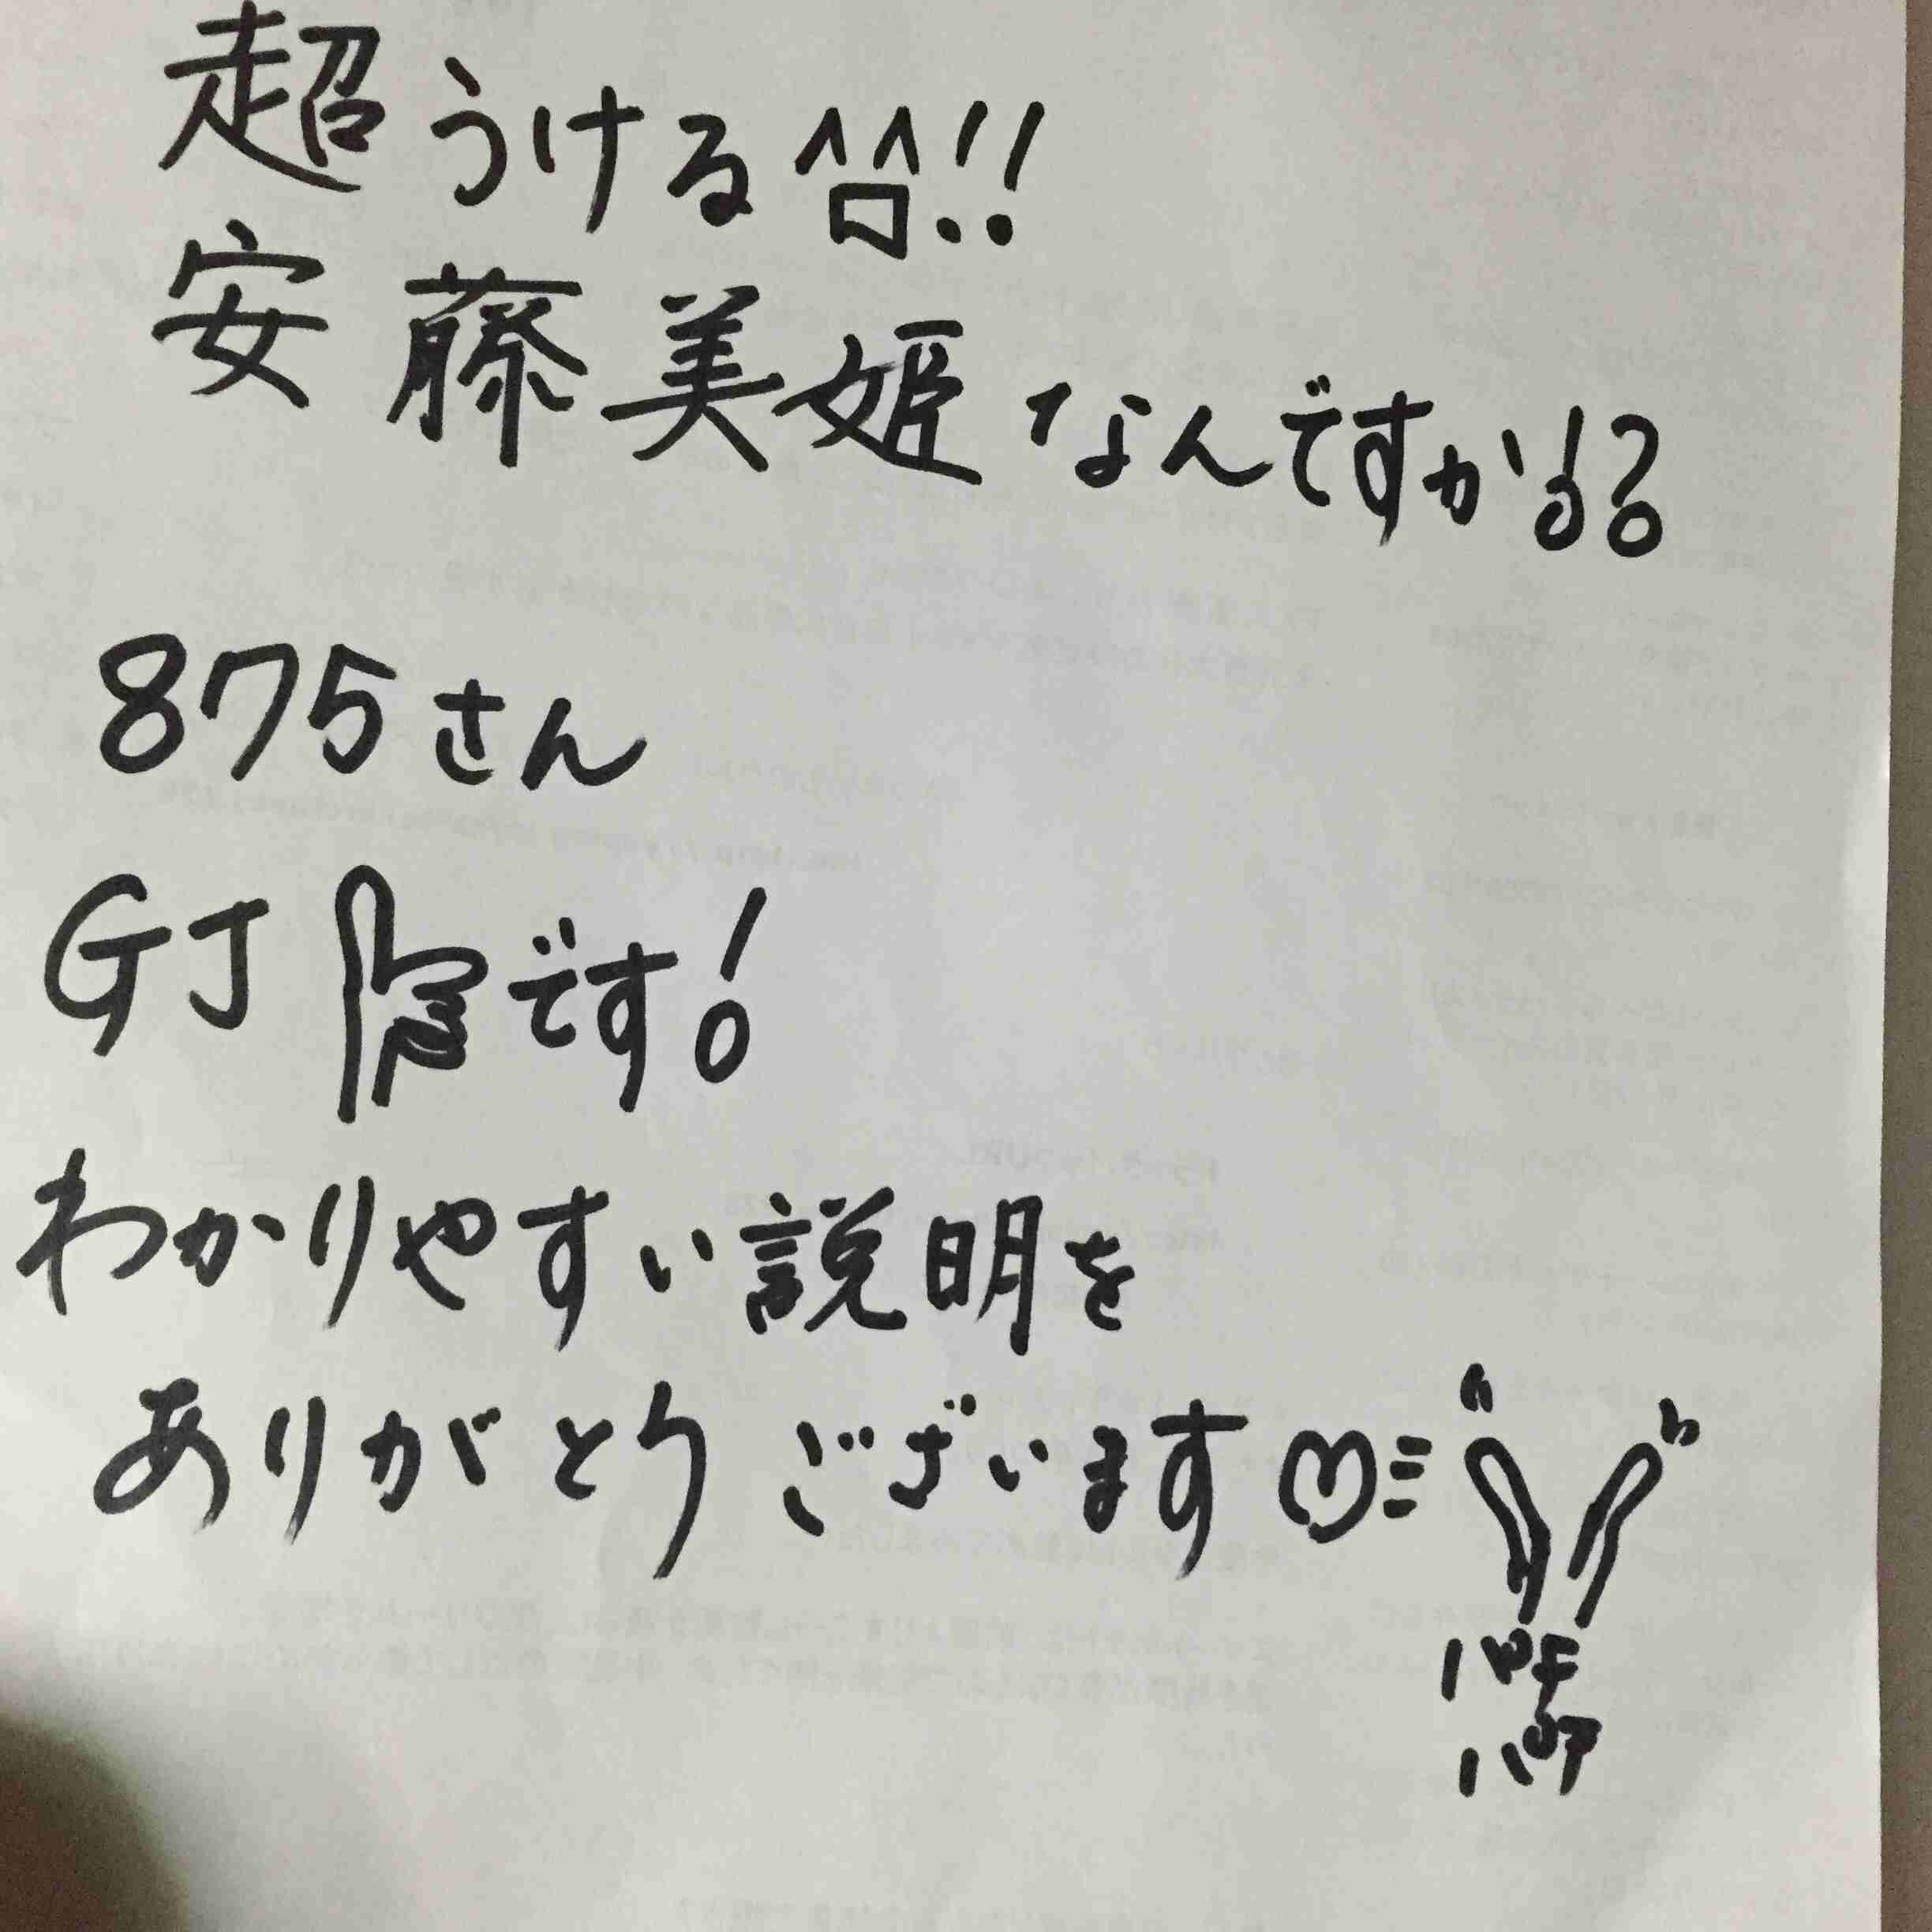 超うける^^!!
安藤美姫なんですか!?
875さん
GJです!
わかりやすい説明を
ありがとうございます♡
パチ
パチ